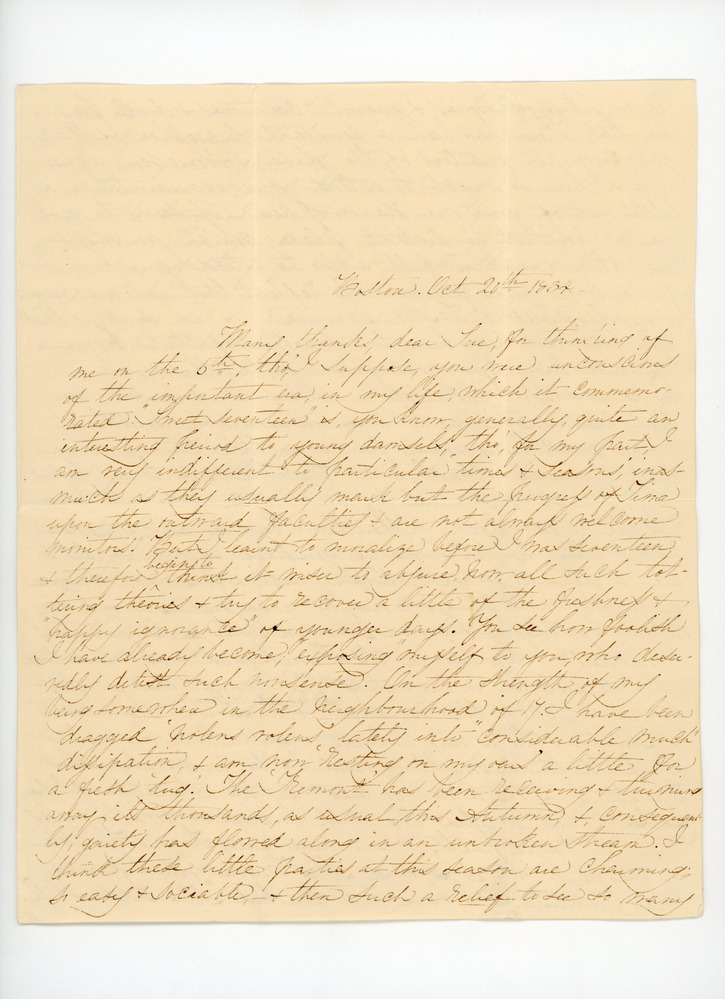 Boston. Oct 20th 1834
Many thanks, dear Sue, for thinking of
me on the 5th, tho, I suppose, you were unconscious
of the important era, in my life, which it commemo-
rated. "Sweet seventeen" is, you know, generally, quite an
interesting period to young damsels, tho, for my part, I
am very indifferent to particular "times & seasons", inas-
much as they usually mark but the progress of Time
upon the outward faculties & are not always welcome
monitors. But I learnt to moralize before I was seventeen,
& therefore begin to think it wiser to abjure, now, all such tot-
tering theories & try to recover a little of the freshness &
"happy ignorance" of younger days. You see how foolish
I have already become, exposing myself to you, who deser-
vedly detest such nonsense. On the strength of my
being somewhere in the neighbourhood of 17, I have been
dragged "nolens volens" lately into "considerable much"
dissipation, & am now "resting on my oars" a little for
a fresh tug. The "Tremont" has been receiving & turning
away its thousands, as usual, this Autumn, & consequent-
ly, gaiety has flowed along in an unbroken stream. I
think these little parties at this season are charming;
so easy & sociable, & then such a relief to see so many